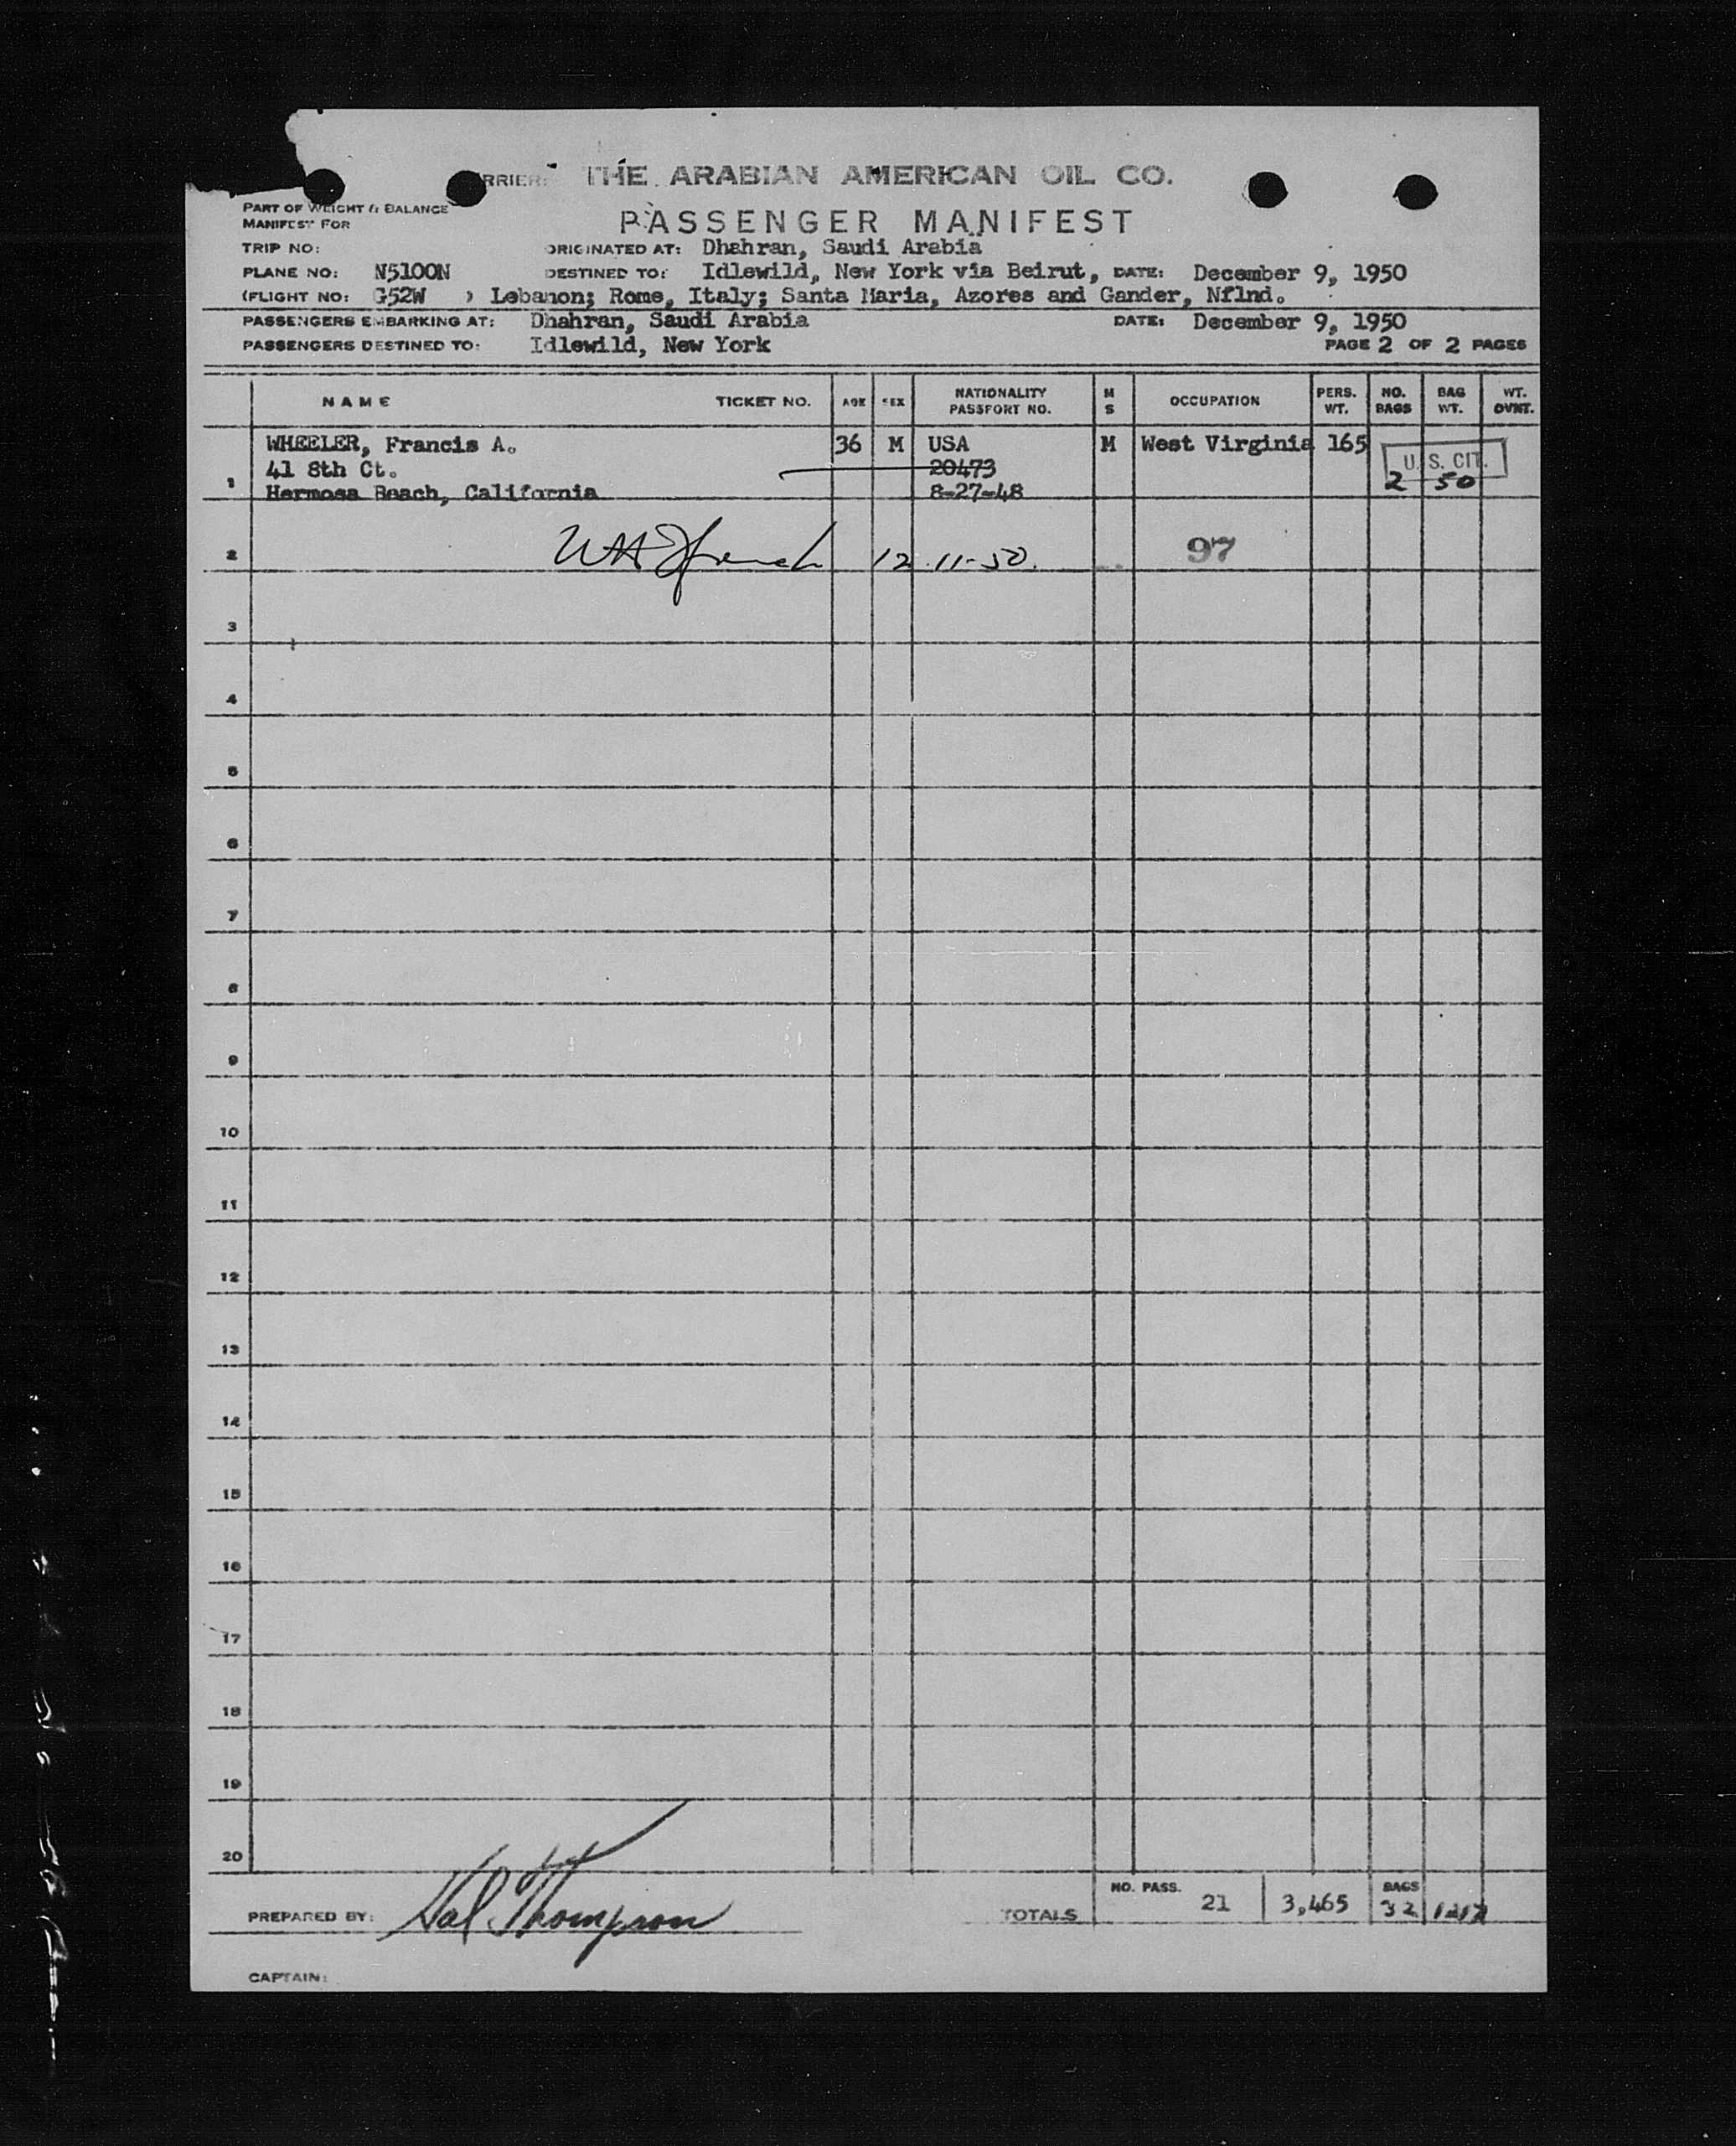 RRIER: THE ARABIAN AMERICAN OIL CO.
PART OF WEIGHT & BALANCE
MANIFEST FOR
PASSENGER MANIFEST
TRIP NO: ORIGINATED AT: Dhahran, Saudi Arabia
PLANE NO: N5100N DESTINED TO: Idlewild, New York via Beirut, DATE: December 9, 1950
(FLIGHT NO: G52W ) Lebanon; Rome, Italy; Santa Maria, Azores and Gander, Nflnd.
PASSENGERS EMBARKING AT: Dhahran, Saudi Arabia DATE: December 9, 1950
PASSENGERS DESTINED TO: Idlewild, New York PAGE 2 OF 2 PAGES
NAME TICKET NO. AGE SEX NATIONALITY PASSPORT NO. M S OCCUPATION PERS. WT. NO. BAGS BAG WT. WT. OVNT.
WHEELER, Francis A. 36 M USA M West Virginia 165
41 8th Ct. 20473 U. S. CIT.
1 Hermosa Beach, California 8-27-48 2 50
2 12-11-50. 97
3
4
5
6
7
8
9
10
11
12
13
14
15
16
17
18
19
20
NO. PASS. BAGS
PREPARED BY: Hal Thompson TOTALS 21 3,465 32 1212
CAPTAIN: